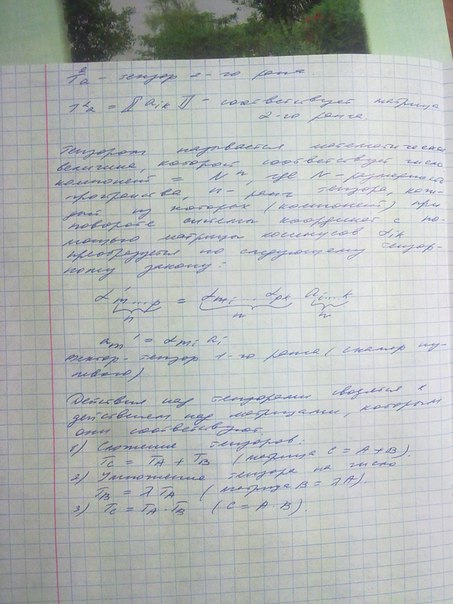 T²a - тензор 2-го ранга.
T²a = ‖ aik ‖ - соответствует матрица
2-го ранга
Тензором называется математическая
величина, которой соответствует число
компонент = N^n, где N - размерность
пространства, n - ранг тензора, каж-
дый из которых (компонент) при
повороте системы координат с по-
мощью матрицы косинусов αik
преобразуется по следующему тензор-
ному закону:
α'm...p = αmi...αpk ai...k
n n n
am' = αmi ai
Вектор-тензор 1-го ранга (скаляр ну-
левого)
Действия над тензорами сводятся к
действиям над матрицами, которым
они соответствуют.
1) Сложение тензоров.
TC = TA + TB (матрица C = A + B)
2) Умножение тензора на число.
TB = λTA (матрица B = λA)
3) TC = TA · TB (C = A · B).